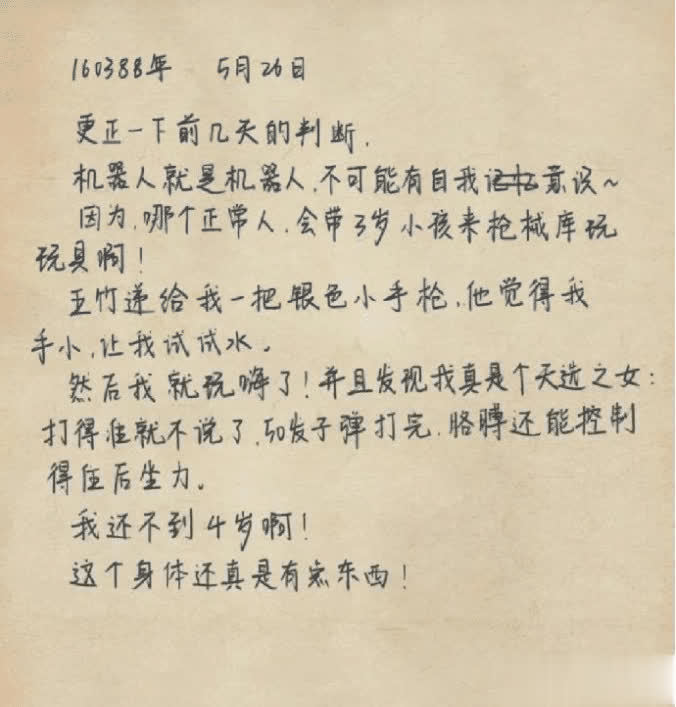 160388年 5月26日
更正一下前几天的判断.
机器人就是机器人.不可能有自我记忆意识~
因为.哪个正常人.会带3岁小孩来枪械库玩
玩具啊!
五竹递给我一把银色小手枪.他觉得我
手小.让我试试水。
然后我就玩嗨了!并且发现我真是个天选之女:
打得准就不说了.50发子弹打完.胳膊还能控制
得住后坐力。
我还不到4岁啊!
这个身体还真是有点东西!